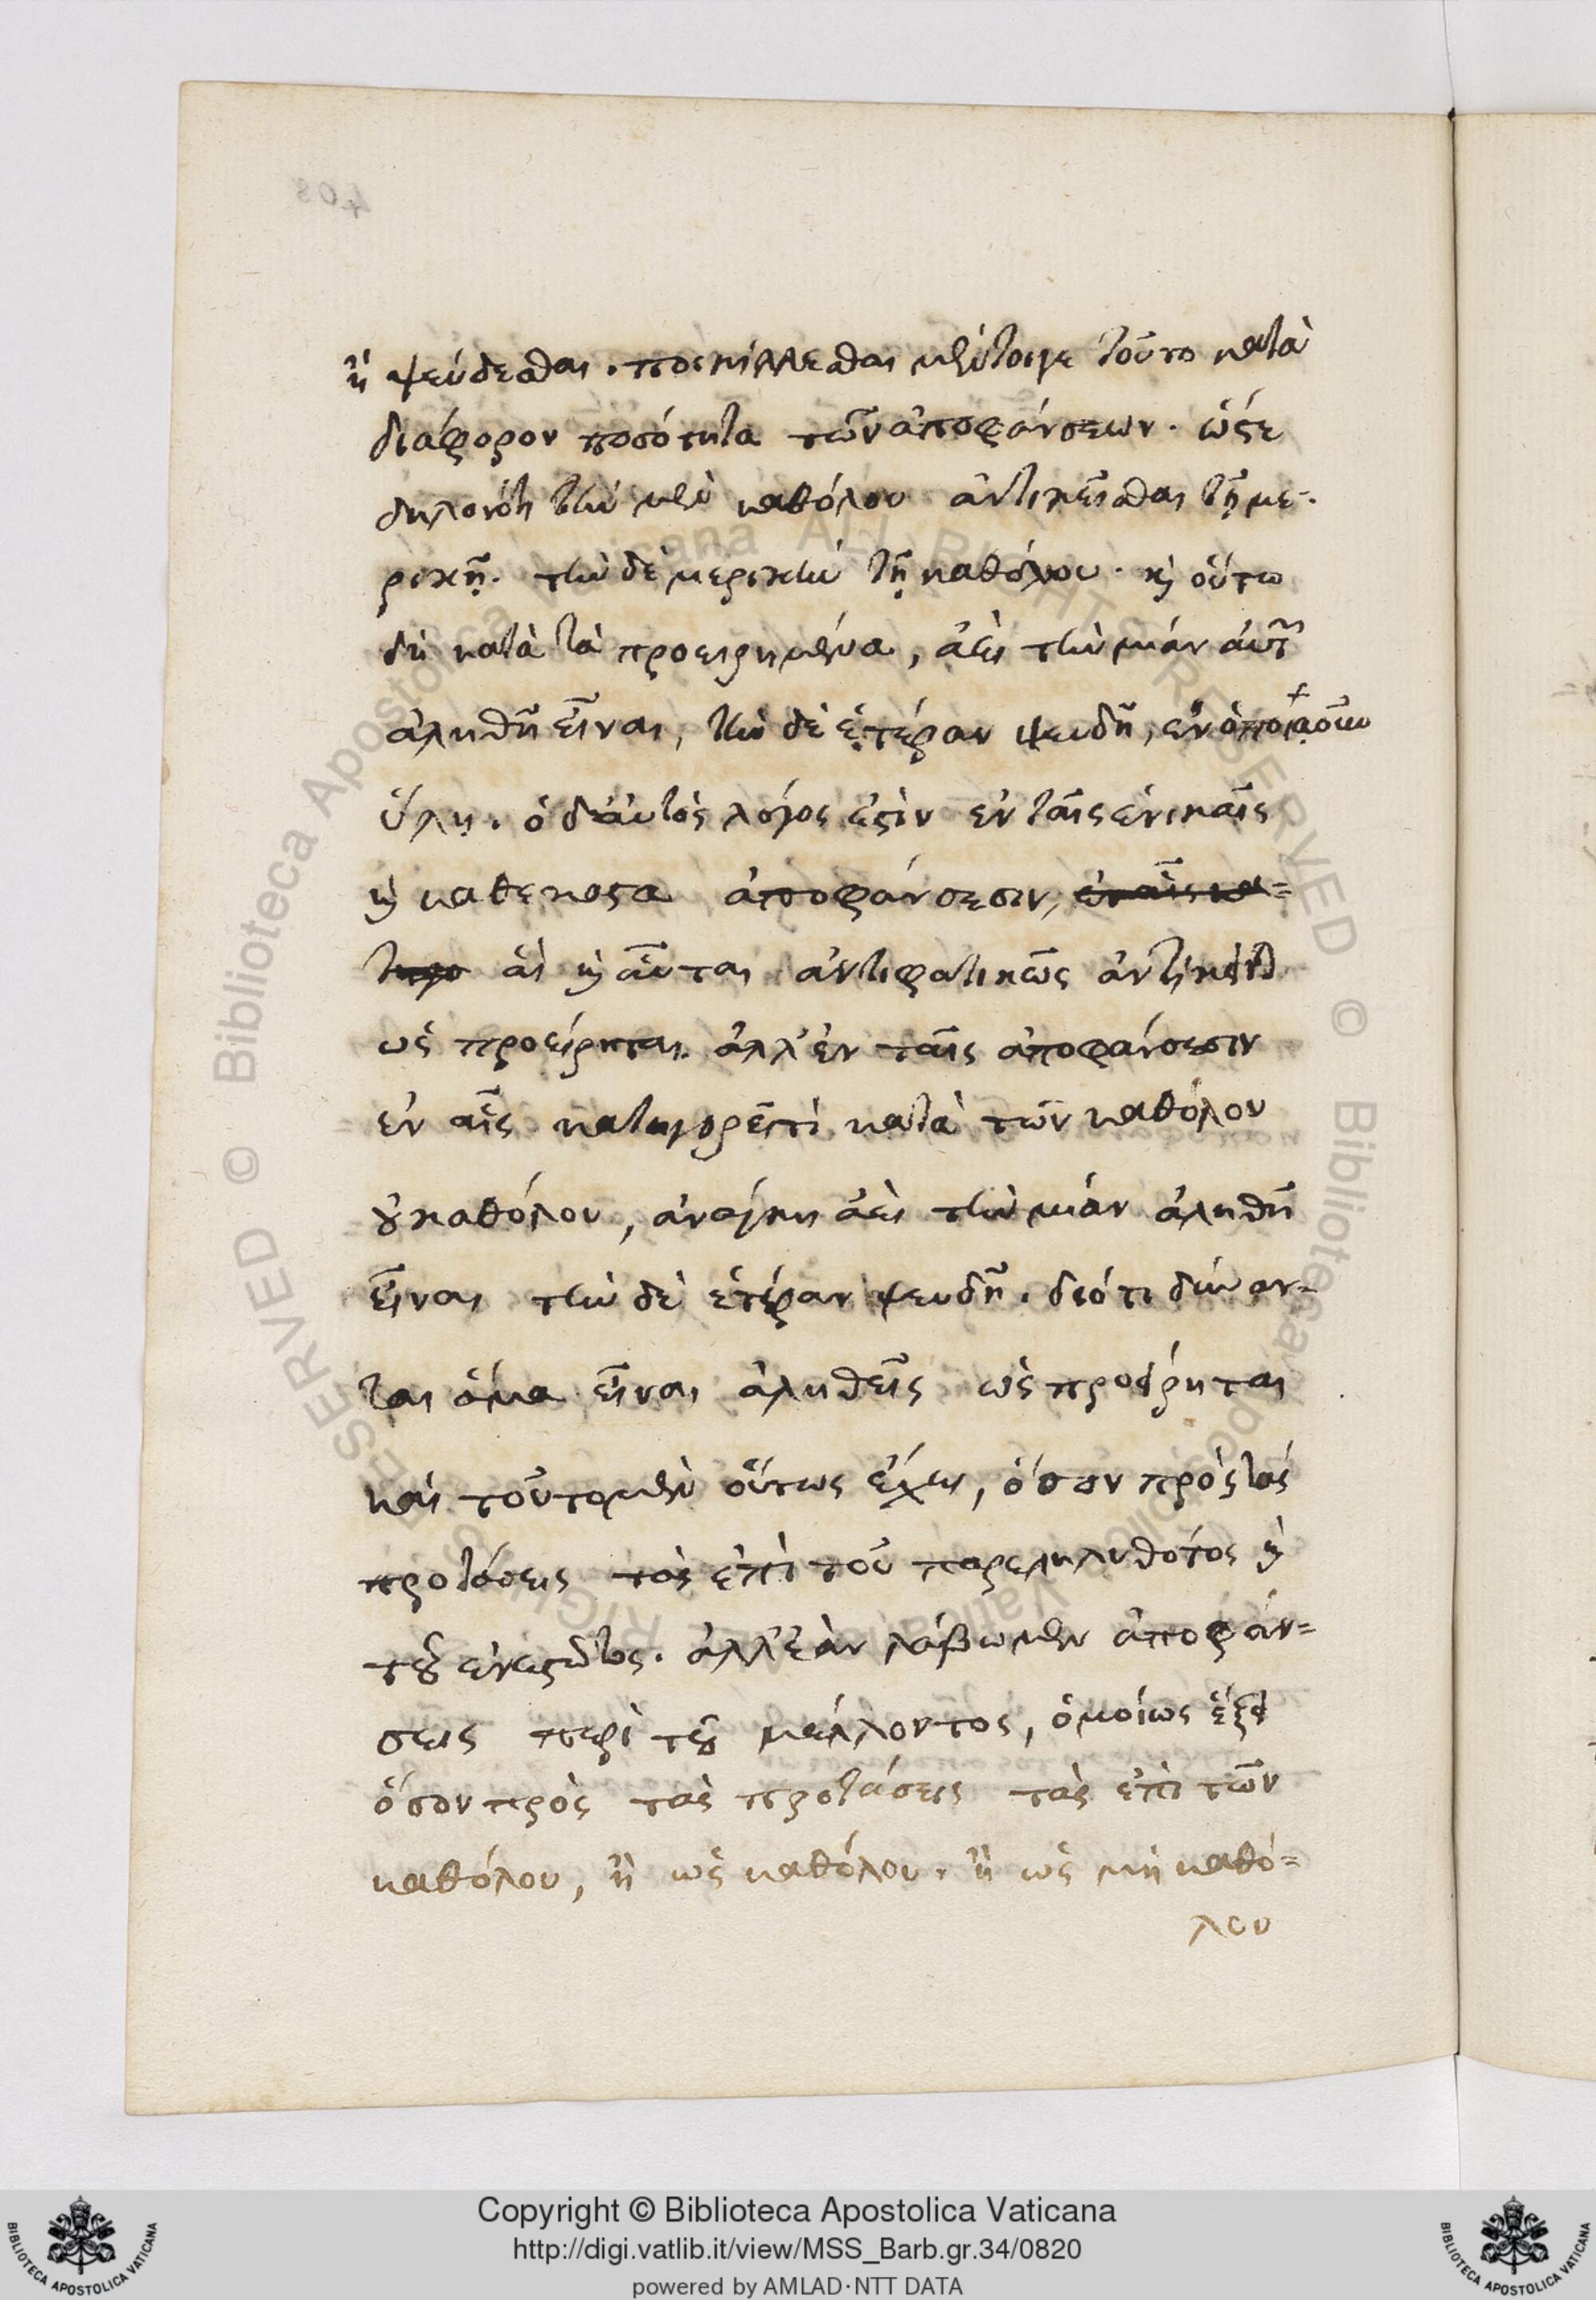 ἢ ψεύδεσθαι. ποικίλλεσθαι μέντοιγε τοῦτο κατὰ
διάφορον ποσότητα τῶν ἀποφάνσεων. ὥστε
δηλονότι τὴν μὲν καθόλου ἀντικεῖσθαι τῇ με-
ρικῇ. τὴν δὲ μερικὴν τῇ καθόλου. καὶ οὕτω
δὴ κατὰ τὰ προειρημένα, ἀεὶ τὴν μίαν αὐτῶν
ἀληθῆ εἶναι, τὴν δὲ ἑτέραν ψευδῆ, ἐν ὁποίᾳ οὖν
ὕλῃ. ὁ δ' αὐτὸς λόγος ἐστὶν ἐν ταῖς ἑνικαῖς
καὶ καθέκαστα ἀποφάνσεσιν,
αἳ καὶ αὗται ἀντιφατικῶς ἀντίκεινται
ὡς προείρηται. ἀλλ' ἐν ταῖς ἀποφάνσεσιν
ἐν αἷς κατηγορεῖ τι κατὰ τῶν καθόλου
οὐ καθόλου, ἀνάγκη ἀεὶ τὴν μίαν ἀληθῆ
εἶναι τὴν δὲ ἑτέραν ψευδῆ. διότι δύναν-
ται ἅμα εἶναι ἀληθεῖς ὡς προείρηται
καὶ τοῦτο μὲν οὕτως ἔχει, ὅσον πρὸς τὰς
προτάσεις τὰς ἐπὶ τοῦ παρεληλυθότος καὶ
τοῦ ἐνεστῶτος. ἀλλ' ἐὰν λάβωμεν ἀποφάν-
σεις περὶ τοῦ μέλλοντος, ὁμοίως ἕξει
ὅσον πρὸς τὰς προτάσεις τὰς ἐπὶ τῶν
καθόλου, ἢ ὡς καθόλου. ἢ ὡς μὴ καθό-
λου
408
Copyright © Biblioteca Apostolica Vaticana
http://digi.vatlib.it/view/MSS_Barb.gr.34/0820
powered by AMLAD·NTT DATA